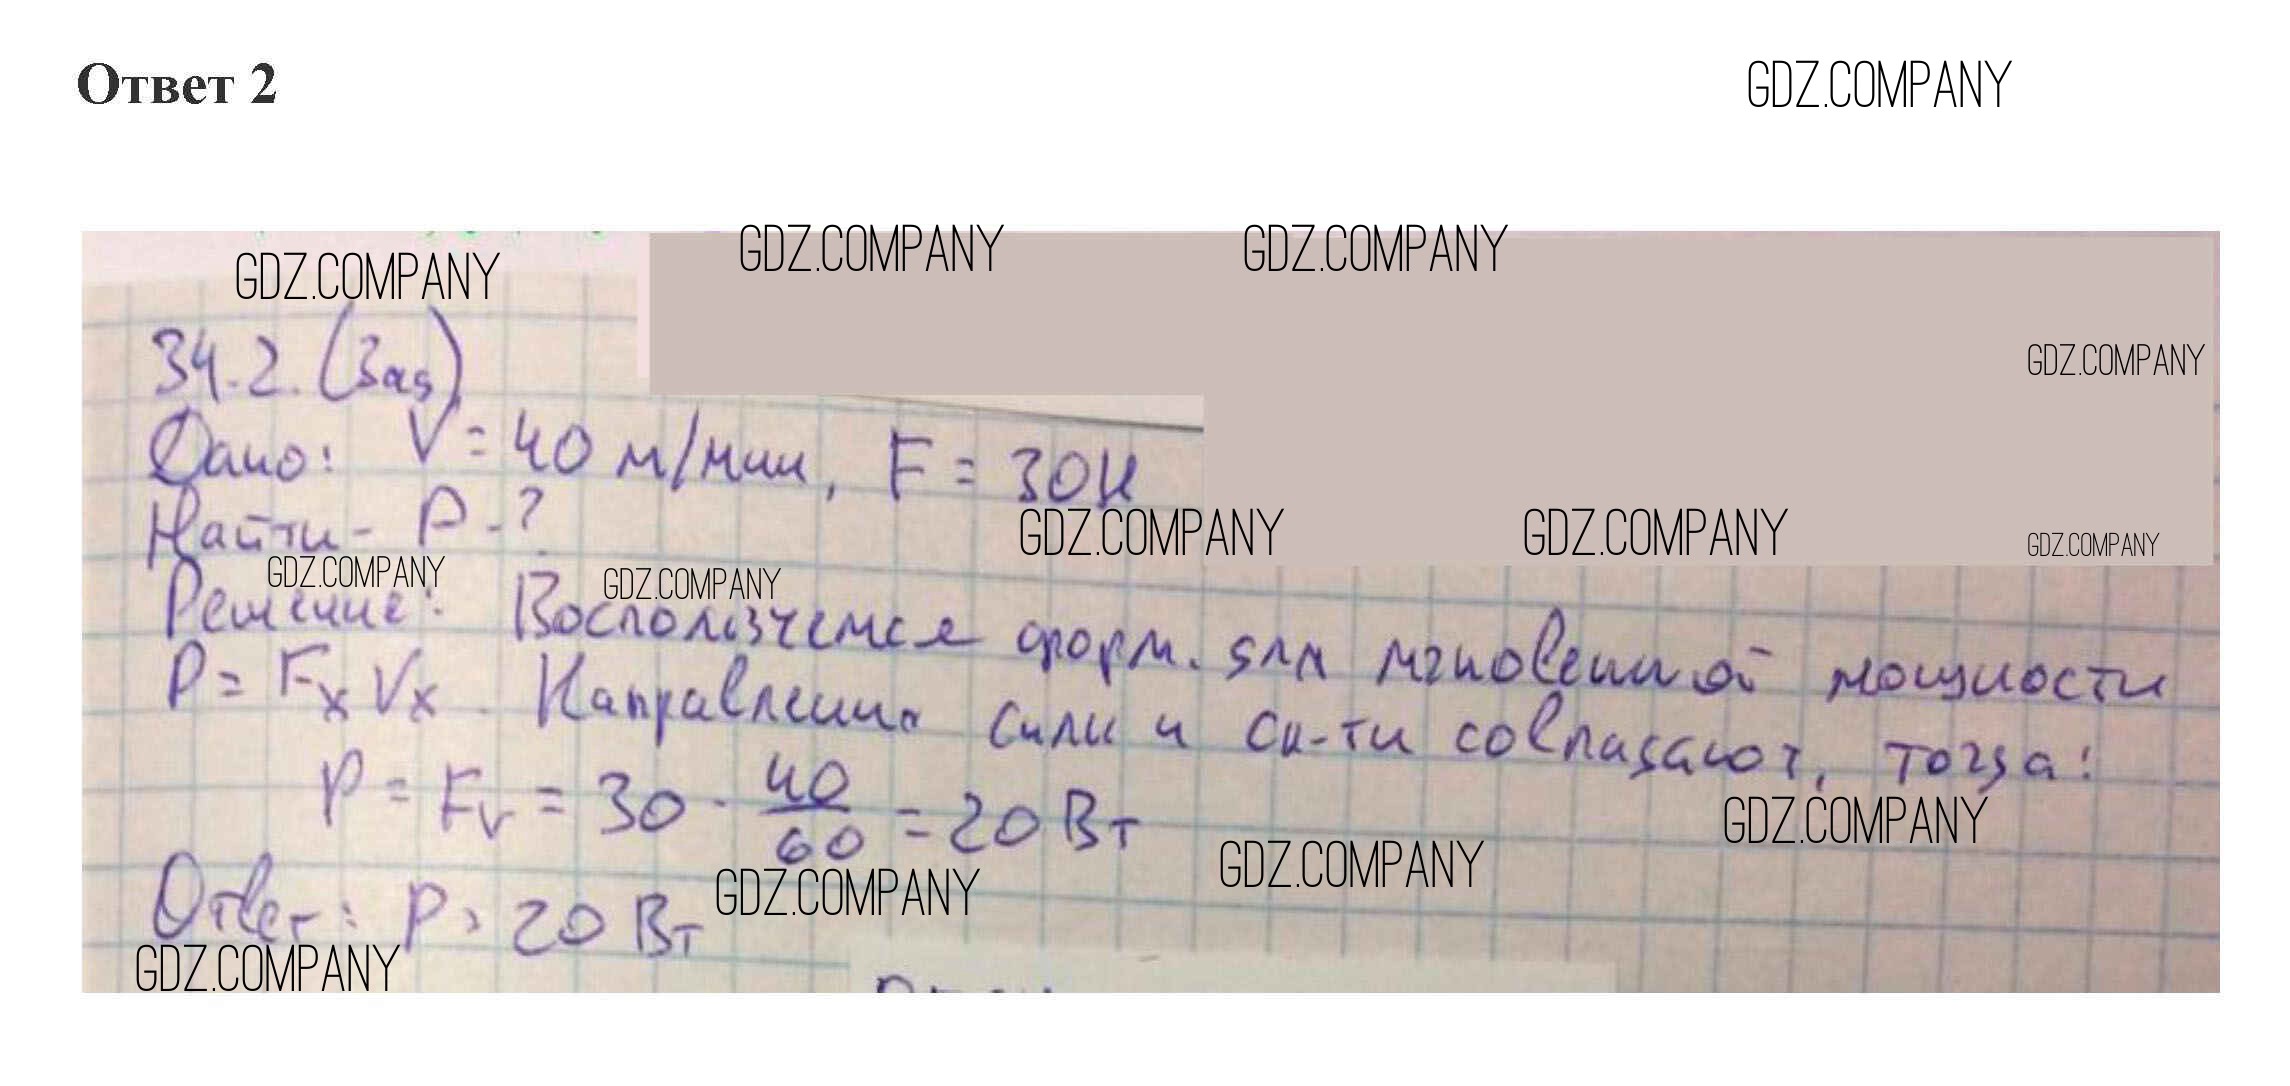 Ответ 2
GDZ.COMPANY
GDZ.COMPANY GDZ.COMPANY GDZ.COMPANY
34.2. (Зад)
GDZ.COMPANY
Дано: V = 40 м/мин, F = 30Н
Найти - P - ?
GDZ.COMPANY GDZ.COMPANY GDZ.COMPANY
GDZ.COMPANY GDZ.COMPANY
Решение: Воспользуемся форм. для мгновенной мощности
P = Fx Vx. Направления силы и ск-ти совпадают, тогда:
P = Fv = 30 · 40/60 = 20 Вт
GDZ.COMPANY
GDZ.COMPANY GDZ.COMPANY
Ответ: P = 20 Вт
GDZ.COMPANY